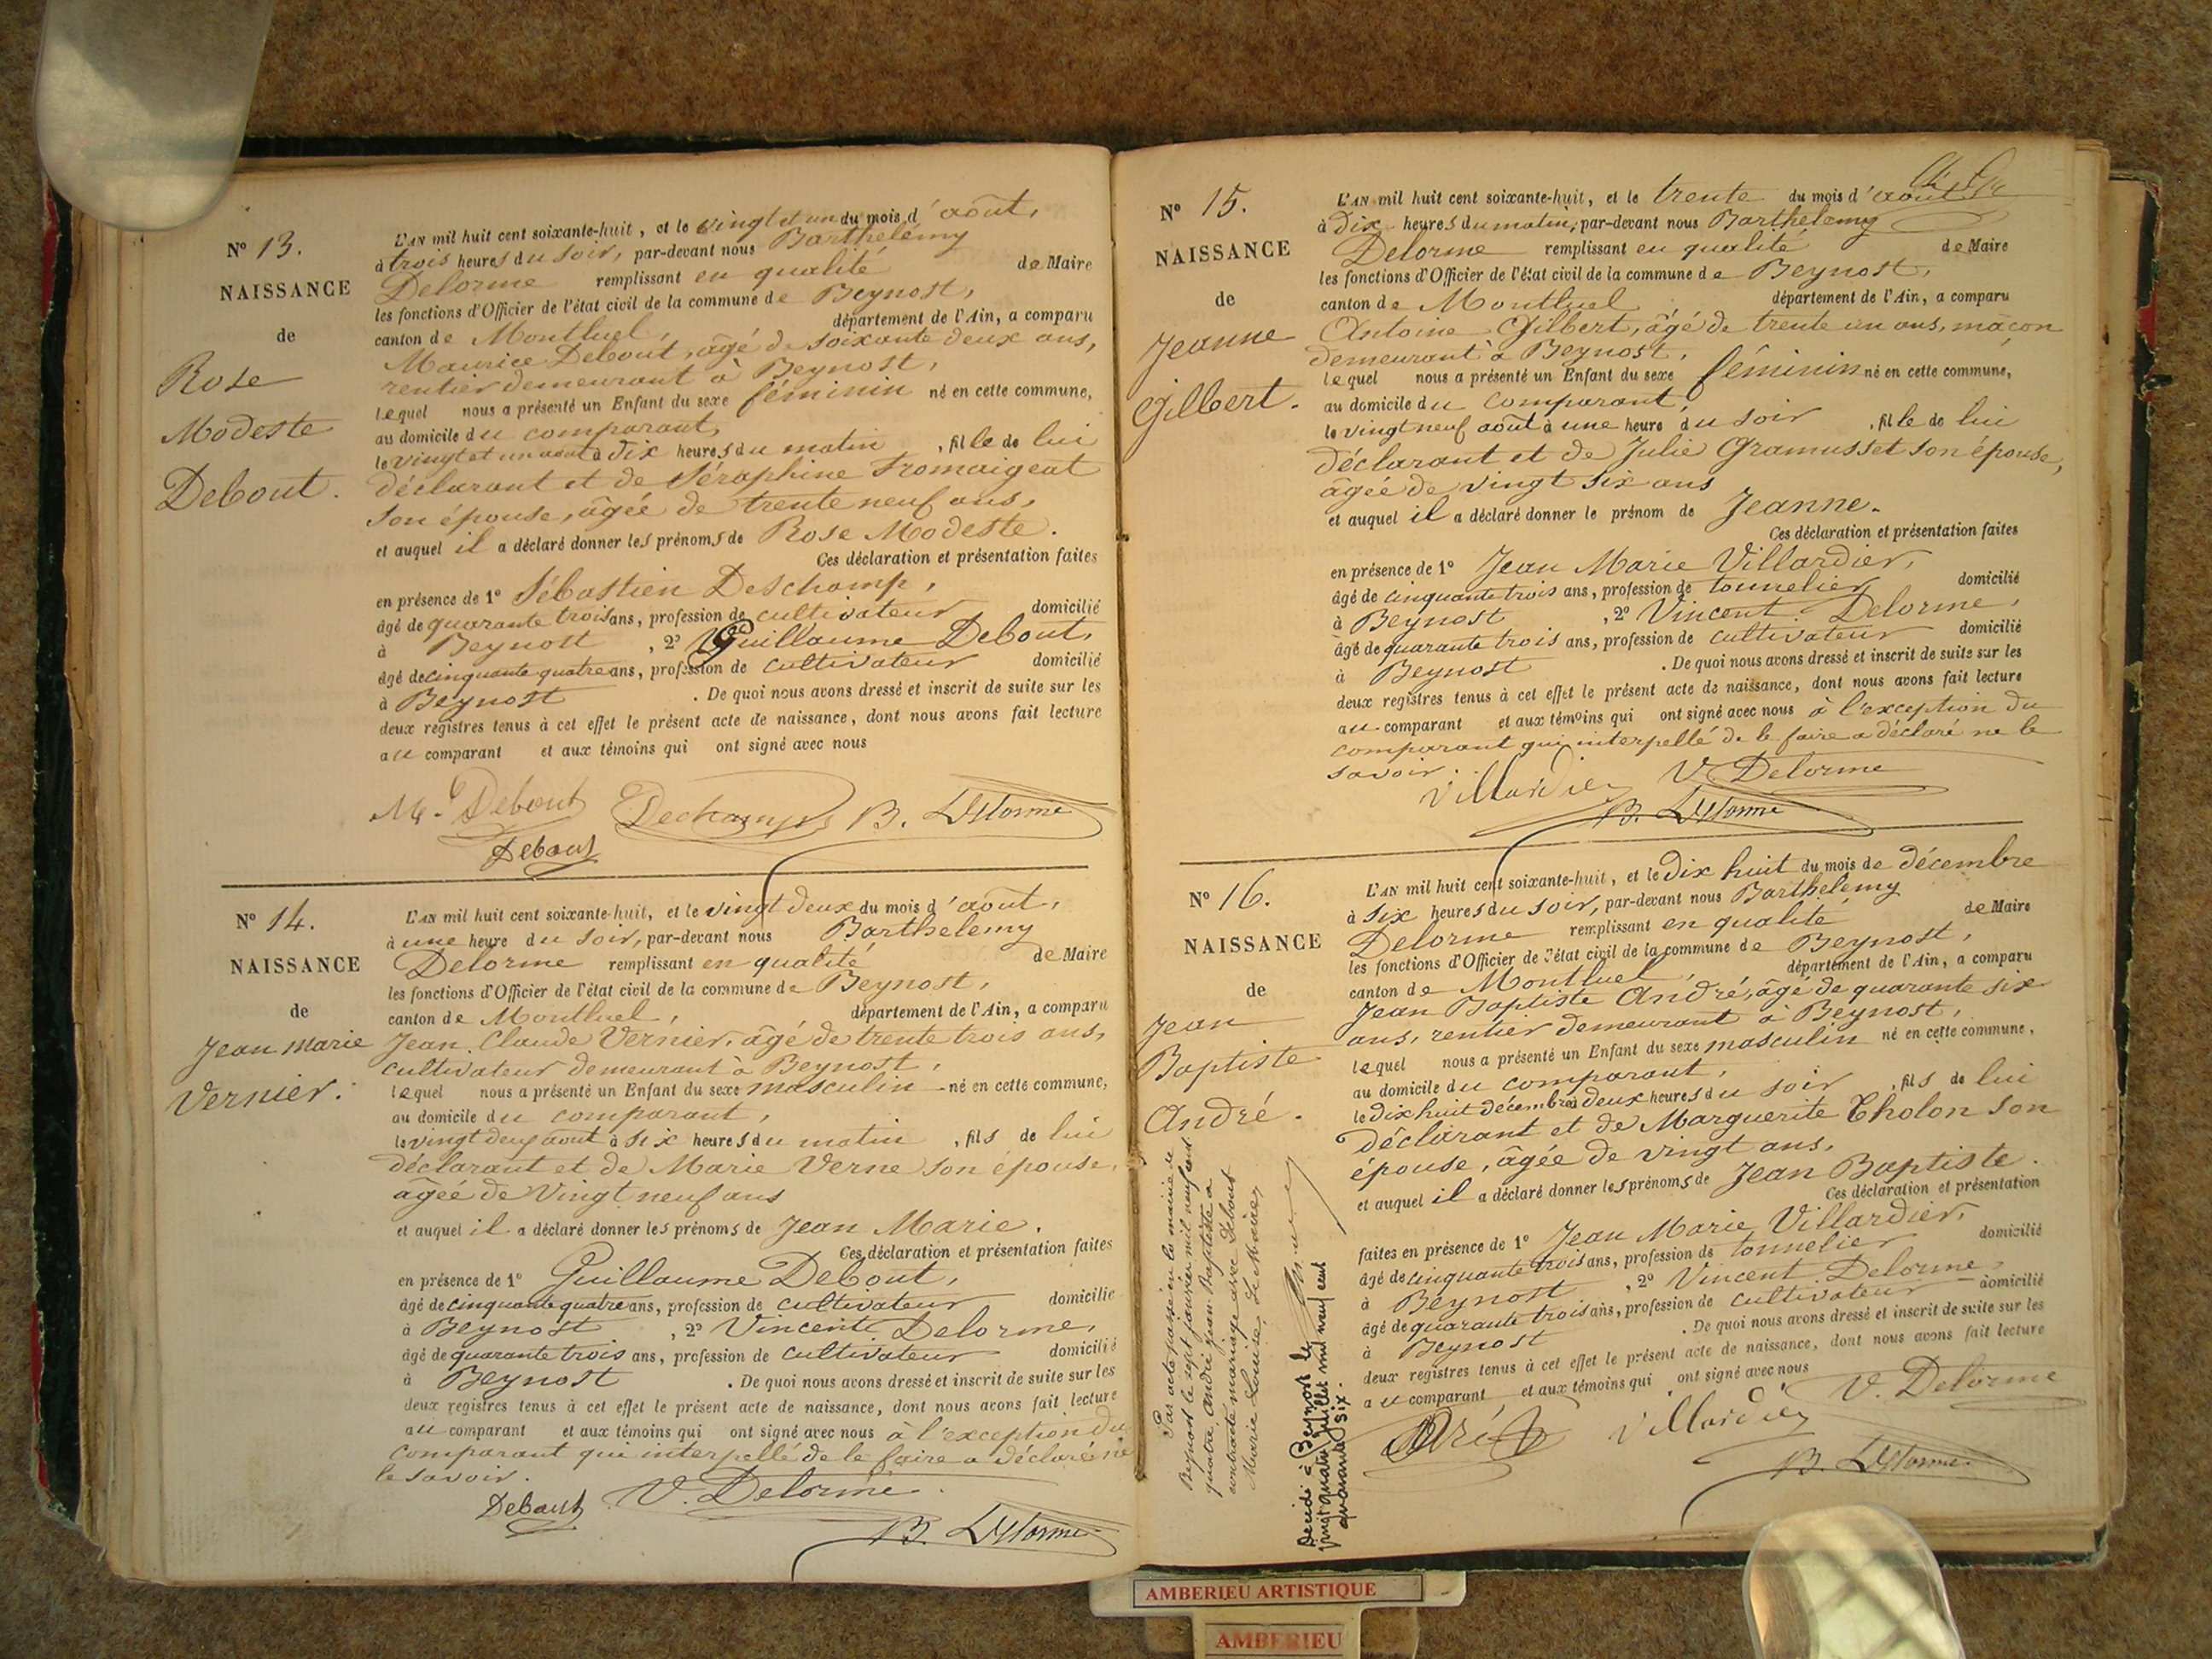 N° 13.
NAISSANCE
de
Rose
Modeste
Debout.
L'AN mil huit cent soixante-huit, et le vingt et un du mois d'août,
à trois heures du soir, par-devant nous Barthélemy
Delorme remplissant en qualité de Maire
les fonctions d'Officier de l'état civil de la commune de Beynost,
canton de Montluel, département de l'Ain, a comparu
Maurice Debout, âgé de soixante deux ans,
rentier demeurant à Beynost,
lequel nous a présenté un Enfant du sexe féminin né en cette commune,
au domicile du comparant,
le vingt et un août à dix heures du matin, fille de lui
déclarant et de Séraphine Fromaigeat
son épouse, âgée de trente neuf ans,
et auquel il a déclaré donner les prénoms de Rose Modeste.
Ces déclaration et présentation faites
en présence de 1° Sébastien Deschamp,
âgé de quarante trois ans, profession de cultivateur domicilié
à Beynost, 2° Guillaume Debout,
âgé de cinquante quatre ans, profession de cultivateur domicilié
à Beynost. De quoi nous avons dressé et inscrit de suite sur les
deux registres tenus à cet effet le présent acte de naissance, dont nous avons fait lecture
au comparant et aux témoins qui ont signé avec nous
M. Debout Dechamps B. Delorme
Debout
N° 14.
NAISSANCE
de
Jean Marie
Vernier.
L'AN mil huit cent soixante-huit, et le vingt deux du mois d'août,
à une heure du soir, par-devant nous Barthelemy
Delorme remplissant en qualité de Maire
les fonctions d'Officier de l'état civil de la commune de Beynost,
canton de Montluel, département de l'Ain, a comparu
Jean Claude Vernier, âgé de trente trois ans,
cultivateur demeurant à Beynost,
lequel nous a présenté un Enfant du sexe masculin né en cette commune,
au domicile du comparant,
le vingt deux août à six heures du matin, fils de lui
déclarant et de Marie Verne son épouse,
âgée de vingt neuf ans
et auquel il a déclaré donner les prénoms de Jean Marie.
Ces déclaration et présentation faites
en présence de 1° Guillaume Debout,
âgé de cinquante quatre ans, profession de cultivateur domicilié
à Beynost, 2° Vincent Delorme,
âgé de quarante trois ans, profession de cultivateur domicilié
à Beynost. De quoi nous avons dressé et inscrit de suite sur les
deux registres tenus à cet effet le présent acte de naissance, dont nous avons fait lecture
au comparant et aux témoins qui ont signé avec nous à l'exception du
comparant qui interpellé de le faire a déclaré ne
le savoir.
Debout V. Delorme
B. Delorme
N° 15.
NAISSANCE
de
Jeanne
Gilbert.
L'AN mil huit cent soixante-huit, et le trente du mois d'août
à dix heures du matin, par-devant nous Barthelemy
Delorme remplissant en qualité de Maire
les fonctions d'Officier de l'état civil de la commune de Beynost,
canton de Montluel département de l'Ain, a comparu
Antoine Gilbert, âgé de trente un ans, maçon
demeurant à Beynost,
lequel nous a présenté un Enfant du sexe féminin né en cette commune,
au domicile du comparant,
le vingt neuf août à une heure du soir, fille de lui
déclarant et de Julie Gramusset son épouse,
âgée de vingt six ans
et auquel il a déclaré donner le prénom de Jeanne.
Ces déclaration et présentation faites
en présence de 1° Jean Marie Villardier,
âgé de cinquante trois ans, profession de tonnelier domicilié
à Beynost, 2° Vincent Delorme,
âgé de quarante trois ans, profession de cultivateur domicilié
à Beynost. De quoi nous avons dressé et inscrit de suite sur les
deux registres tenus à cet effet le présent acte de naissance, dont nous avons fait lecture
au comparant et aux témoins qui ont signé avec nous à l'exception du
comparant qui interpellé de le faire a déclaré ne le
savoir.
Villardier V. Delorme
B. Delorme
N° 16.
NAISSANCE
de
Jean
Baptiste
André.
L'AN mil huit cent soixante-huit, et le dix huit du mois de décembre
à six heures du soir, par-devant nous Barthelemy
Delorme remplissant en qualité de Maire
les fonctions d'Officier de l'état civil de la commune de Beynost,
canton de Montluel, département de l'Ain, a comparu
Jean Baptiste André, âgé de quarante six
ans, rentier demeurant à Beynost,
lequel nous a présenté un Enfant du sexe masculin né en cette commune,
au domicile du comparant,
le dix huit décembre à deux heures du soir, fils de lui
déclarant et de Marguerite Cholon son
épouse, âgée de vingt ans,
et auquel il a déclaré donner les prénoms de Jean Baptiste.
Ces déclaration et présentation
faites en présence de 1° Jean Marie Villardier,
âgé de cinquante trois ans, profession de tonnelier domicilié
à Beynost, 2° Vincent Delorme,
âgé de quarante trois ans, profession de cultivateur domicilié
à Beynost. De quoi nous avons dressé et inscrit de suite sur les
deux registres tenus à cet effet le présent acte de naissance, dont nous avons fait lecture
au comparant et aux témoins qui ont signé avec nous
Villardier V. Delorme
B. Delorme
Par acte passé en la mairie de
Beynost le sept janvier mil neuf cent
quatre, André Jean Baptiste a
contracté mariage avec Debout
Marie Louise. Le Maire,
Décédé à Beynost le
vingt quatre juillet mil neuf cent
quarante six.
AMBERIEU ARTISTIQUE
AMBERIEU